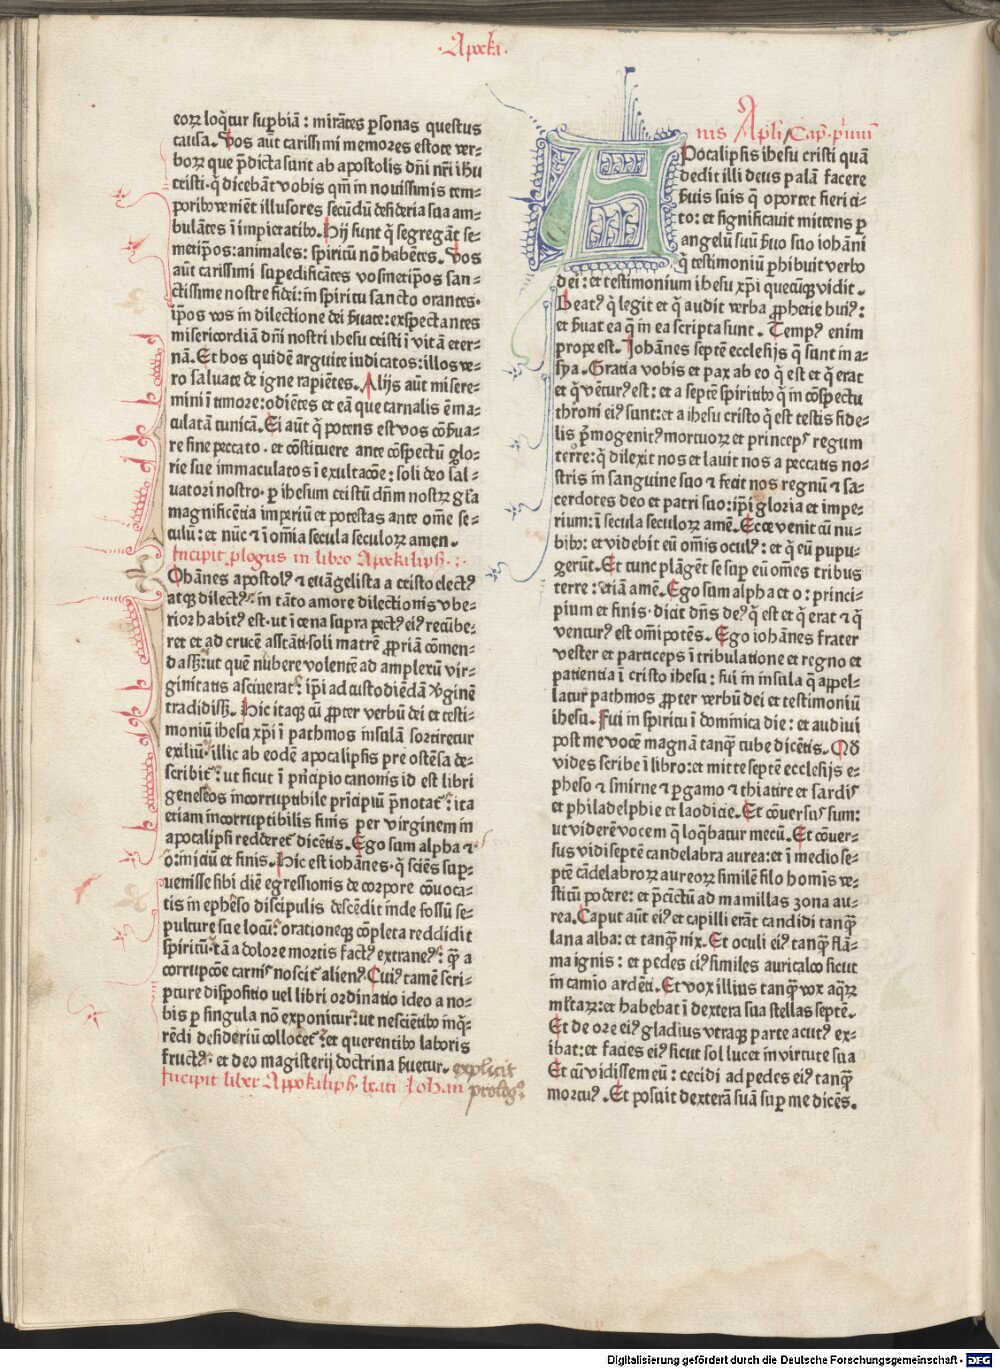 ·Apoka·
eoꝝ loq̄tur suꝑbiā : mirātes ꝑsonas questus
causa. Vos aūt carissimi memores estote ver⸗
boꝝ que p̄dicta sunt ab apostolis dn̄i nr̄i ihū
cristi· q̄ dicebāt vobis qm̄ in nouissimis tem⸗
poribꝰ veniēt illusores secūdū desideria sua am⸗
bulātes ī impietatibꝰ. Hij sunt q̄ segregāt se⸗
metip̄os: animales: spiritū nō habētes. Vos
aūt carissimi suꝑedificātes vosmetip̄os san⸗
ctissime nostre fidei: in spiritu sancto orantes·
ip̄os vos in dilectione dei ẜuate: expectantes
misericordiā dn̄i nostri ihesu cristi ī vitā eter⸗
nā. Et hos quidē arguite iudicatos: illos ve⸗
ro saluate de igne rapiētes. Alijs aūt misere⸗
mini ī timore: odiētes et eā que carnalis ē ma⸗
culatā tunicā. Ei aūt q̄ potens est vos cōẜua⸗
re sine peccato · et cōstituere ante cōspectū glo⸗
rie sue immaculatos ī exultacōe: soli deo sal⸗
uatori nostro· ꝑ ihesum cristū dn̄m nostꝝ gl̄a
magnificētia imperiū et potestas ante om̄e se⸗
culū: et nūc ⁊ ī om̄ia secula seculoꝝ amen.
Incipit ꝓlogus in libro Apokalips̄ ·:·
Iohānes apostolꝰ et euāgelista a cristo electꝰ
atqꝫ dilectꝰ: in tāto amore dilectionis vbe⸗
rior habitꝰ est· ut ī cena supra pectꝰ eiꝰ recūbe⸗
ret et ad crucē asstāti· soli matrē ꝓpriā cōmen⸗
dasꝫ: ut quē nubere volentē ad amplexū vir⸗
ginitatis asciuerat: ip̄i ad custodiēdā v̄ginē
tradidisꝫ. Hic itaqꝫ cū ꝓpter verbū dei et testi⸗
moniū ihesu xp̄i ī pathmos īnsulā sortiretur
exiliū: illic ab eodē apocalipsis pre ostēsa de⸗
scribit: ut sicut ī prīcipio canonis id est libri
geneseos incorruptibile prīcipiū p̄notat: ita
etiam incorruptibilis finis per virginem in
apocalipsi redderet dicētis. Ego sum alpha ⁊
o: iniciū et finis. Hic est iohānes· q̄ sciēs suꝑ⸗
uenisse sibi diē egressionis de corpore cōuoca⸗
tis in epheso discipulis descēdit inde fossū se⸗
pulture sue locū: orationeqꝫ cōpleta reddidit
spiritū· tā a dolore mortis factꝰ extraneꝰ: q̄ꝫ a
corrupcōe carnis noscit alienꝰ. Cuiꝰ tamē scri⸗
pture dispositio uel libri ordinatio ideo a no⸗
bis ꝑ singula nō exponitur: ut nesciētibꝰ inq̄⸗
rēdi desideriū collocet: et querentibꝰ laboris
fructꝰ: et deo magisterij doctrina ẜuetur.
explicit
prologꝰ
Incipit liber Appokalips̄ beati Iohan
nis Apl̄i Cap̄· p̄imū
APocalipsis ihesu cristi quā
dedit illi deus palā facere
ẜuis suis q̄ oportet fieri ci⸗
to: et significauit mittens ꝑ
angelū suū ẜuo suo iohāni
q̄ testimoniū ꝑhibuit verbo
dei: et testimonium ihesu xp̄i quecūqꝫ vidit.
Beatꝰ q̄ legit et q̄ audit verba ꝓphetie huiꝰ:
et ẜuat ea q̄ in ea scripta sunt. Tempꝰ enim
prope est. Iohānes septē ecclesijs q̄ sunt in a⸗
sya. Gratia vobis et pax ab eo q̄ est et q̄ erat
et q̄ vēturꝰ est: et a septē spiritibꝰ q̄ in cōspectu
throni eiꝰ sunt: et a ihesu cristo q̄ est testis fide⸗
lis p̄mogenitꝰ mortuoꝝ et princeps regum
terre: q̄ dilexit nos et lauit nos a peccatis no⸗
stris in sanguine suo ⁊ fecit nos regnū ⁊ sa⸗
cerdotes deo et patri suo: ip̄i gloria et impe⸗
rium: ī secula seculoꝝ amē. Ecce venit cū nu⸗
bibꝰ: et videbit eū om̄is oculꝰ: et q̄ eū pupu⸗
gerūt. Et tunc plāgēt se suꝑ eū om̄es tribus
terre: etiā amē. Ego sum alpha et o: princi⸗
pium et finis· dicit dn̄s deꝰ q̄ est et q̄ erat ⁊ q̄
venturꝰ est om̄ipotēs. Ego iohānes frater
vester et particeps ī tribulatione et regno et
patientia ī cristo ihesu: fui in insula q̄ appel⸗
latur pathmos ꝓpter verbū dei et testimoniū
ihesu. Fui in spiritu ī dominica die: et audiui
post me vocē magnā tanqꝫ tube dicētis. Qd̄
vides scribe ī libro: et mitte septē ecclesijs e⸗
pheso ⁊ smirne ⁊ ꝑgamo ⁊ thiatire et sardis
et philadelphie et laodicie. Et cōuersus sum:
ut viderē vocem q̄ loq̄batur mecū. Et cōuer⸗
sus vidi septē candelabra aurea: et ī medio se⸗
ptē cādelabroꝝ aureoꝝ similē filo homis ve⸗
stitū podere: et p̄cīctū ad mamillas zona au⸗
rea. Caput aūt eiꝰ et capilli erāt candidi tanqꝫ
lana alba: et tanqꝫ nix. Et oculi eiꝰ tanqꝫ flā⸗
ma ignis: et pedes eiꝰ similes auricalco sicut
in camīo ardēti. Et vox illius tanqꝫ vox aqꝝ
ml̄taꝝ: et habebat ī dextera sua stellas septē.
Et de ore eiꝰ gladius vtraqꝫ parte acutꝰ ex⸗
ibat: et facies eiꝰ sicut sol lucet in virtute sua
Et cū vidissem eū: cecidi ad pedes eiꝰ tanqꝫ
mortuꝰ. Et posuit dexterā suā suꝑ me dicēs.
Digitalisierung gefördert durch die Deutsche Forschungsgemeinschaft - DFG